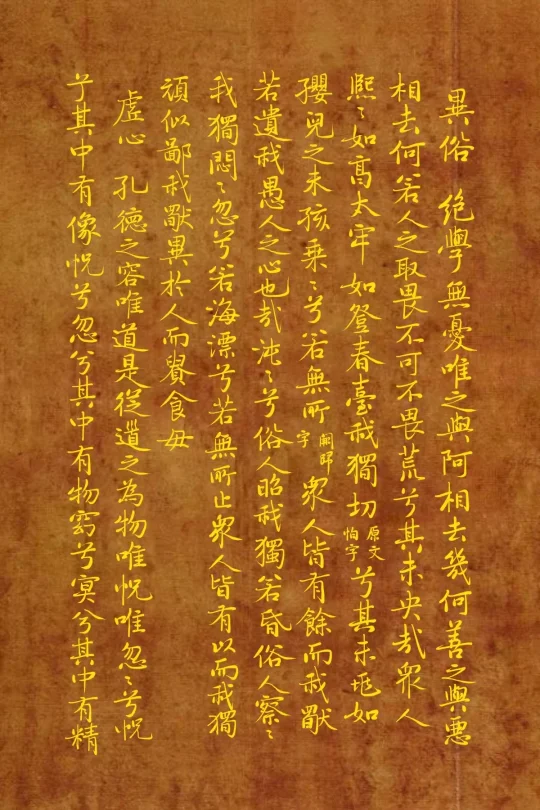 異俗 絶學無憂唯之與阿相去幾何善之與惡
相去何若人之取畏不可不畏荒兮其未央哉衆人
熙〻如高太牢如登春臺我獨切原文怕字兮其未兆如
孾兒之未孩乗〻兮若無所闕歸字衆人皆有餘而我獸
若遺我愚人之心也哉沌〻兮俗人昭我獨若昏俗人察〻
我獨悶〻忽兮若海漂兮若無所止衆人皆有以而我獨
頑似鄙我獸異於人而貴食母
虛心 孔德之容唯道是從道之為物唯怳唯忽〻兮怳
兮其中有像怳兮忽兮其中有物窈兮冥兮其中有精